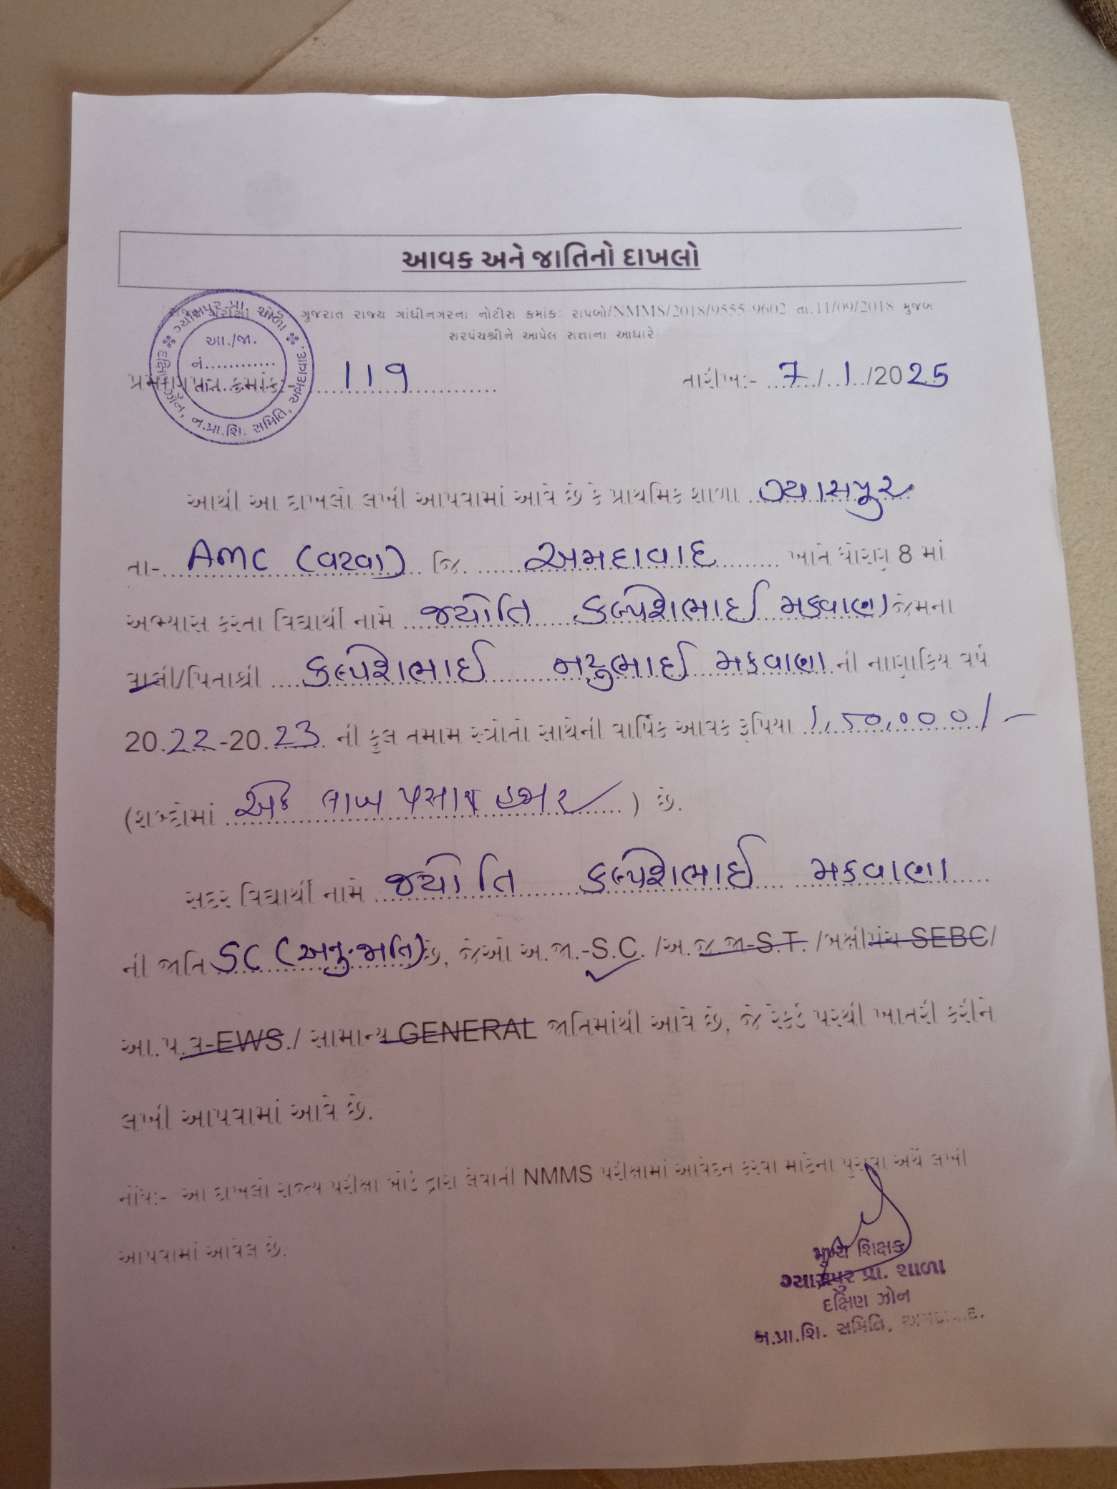 આવક અને જાતિનો દાખલો
ગુજરાત રાજ્ય ગાંધીનગરના નોટીસ ક્રમાંક: રાપબો/NMMS/2018/9555-9602 તા.11/09/2018 મુજબ
સરપંચશ્રીને આપેલ સત્તાના આધારે
ગ્યાસપુર પ્રા. શાળા
આ./જા.
નં............
દક્ષિણ ઝોન, ન.પ્રા.શિ. સમિતિ, અમદાવાદ.
પ્રમાણપત્ર ક્રમાંક:- 119
તારીખ:- 7/1/2025
આથી આ દાખલો લખી આપવામાં આવે છે કે પ્રાથમિક શાળા ગ્યાસપુર
તા- AMC (વટવા) જિ. અમદાવાદ ખાતે ધોરણ 8 માં
અભ્યાસ કરતા વિદ્યાર્થી નામે જ્યોતિ કલ્પેશભાઈ મકવાણા જેમના
વાલી/પિતાશ્રી કલ્પેશભાઈ નટુભાઈ મકવાણા ની નાણાકિય વર્ષ
20.22-20.23 ની કુલ તમામ સ્ત્રોતો સાથેની વાર્ષિક આવક રૂપિયા 1,50,000/-
(શબ્દોમાં એક લાખ પચાસ હજાર ) છે.
સદર વિદ્યાર્થી નામે જ્યોતિ કલ્પેશભાઈ મકવાણા
ની જાતિ SC (અનુ.જાતિ) છે, જેઓ અ.જા.-S.C. /અ.જ.જા-S.T. /બક્ષીપંચ SEBC/
આ.પ.વ-EWS./ સામાન્ય GENERAL જાતિમાંથી આવે છે, જે રેકર્ડ પરથી ખાતરી કરીને
લખી આપવામાં આવે છે.
નોંધ:- આ દાખલો રાજ્ય પરીક્ષા બોર્ડ દ્વારા લેવાતી NMMS પરીક્ષામાં આવેદન કરવા માટેના પુરાવા અર્થે લખી
આપવામાં આવેલ છે.
મુખ્ય શિક્ષક
ગ્યાસપુર પ્રા. શાળા
દક્ષિણ ઝોન
ન.પ્રા.શિ. સમિતિ, અમદાવાદ.